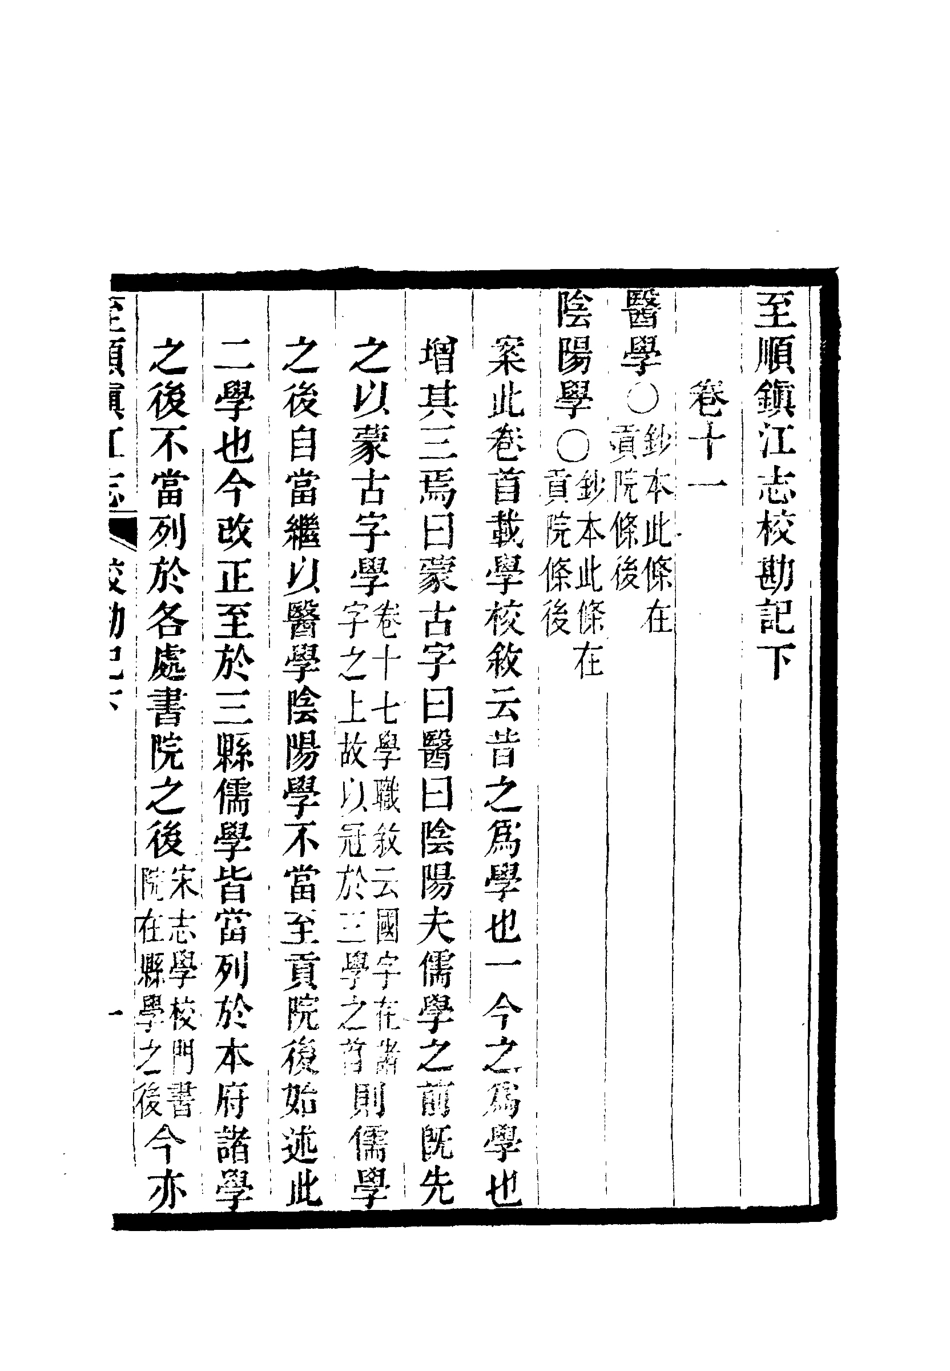 至順鎮江志校勘記下
卷十一
醫學○鈔本此條在貢院條後
陰陽學○鈔本此條在貢院條後
案此卷首載學校敘云昔之爲學也一今之爲學也
增其三焉曰蒙古字曰醫曰陰陽夫儒學之前旣先
之以蒙古字學卷十七學職敘云國字在諸字之上故以冠於三學之首則儒學
之後自當繼以醫學陰陽學不當至貢院後始述此
二學也今改正至於三縣儒學皆當列於本府諸學
之後不當列於各處書院之後宋志學校門書院在縣學之後今亦
至順鎮江志 校勘記下 一